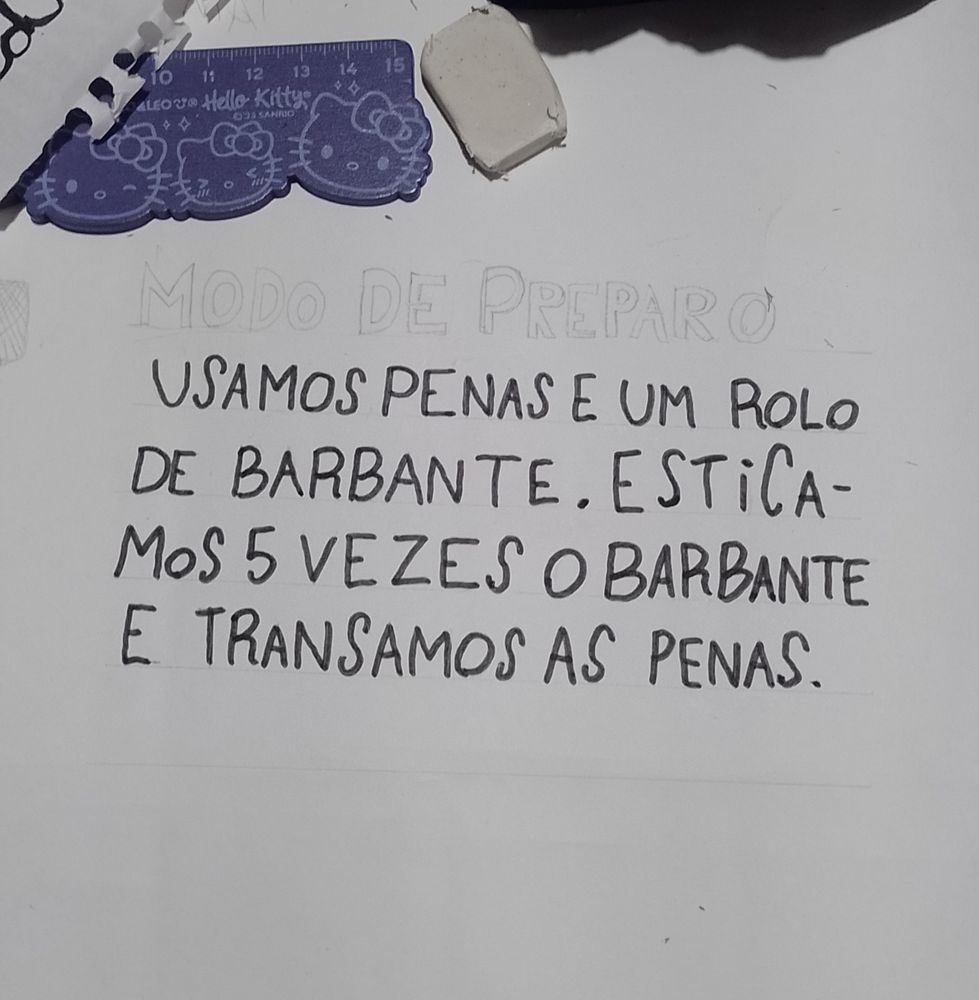 10 11 12 13 14 15
LEO Hello Kitty
©'23 SANRIO
MODO DE PREPARO
USAMOS PENAS E UM ROLO
DE BARBANTE. ESTICA-
MOS 5 VEZES O BARBANTE
E TRANSAMOS AS PENAS.